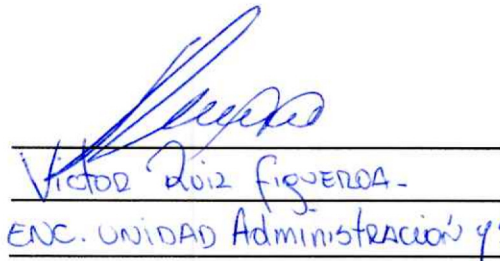 Victor Ruiz Figueroa-
ENC. UNIDAD Administración y